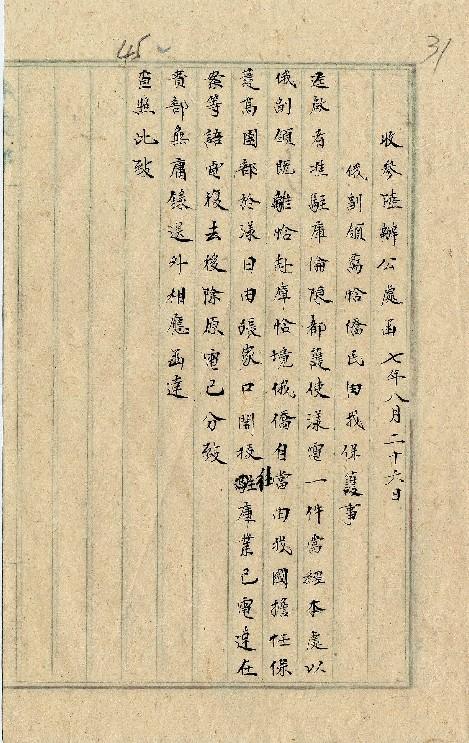 45
31
收參陸辦公處函 七年八月二十六日
俄副領離恰僑民由我保護事
逕啟者準駐庫倫陳都護使漾電一件當經本處以
俄副領既離恰赴庫恰境俄僑自當由我國擔任保
護高團部於漾日由張家口開拔往庫業已電達在
案等語電複去後除原電已分致
貴部無庸錄送外相應函達
查照此致